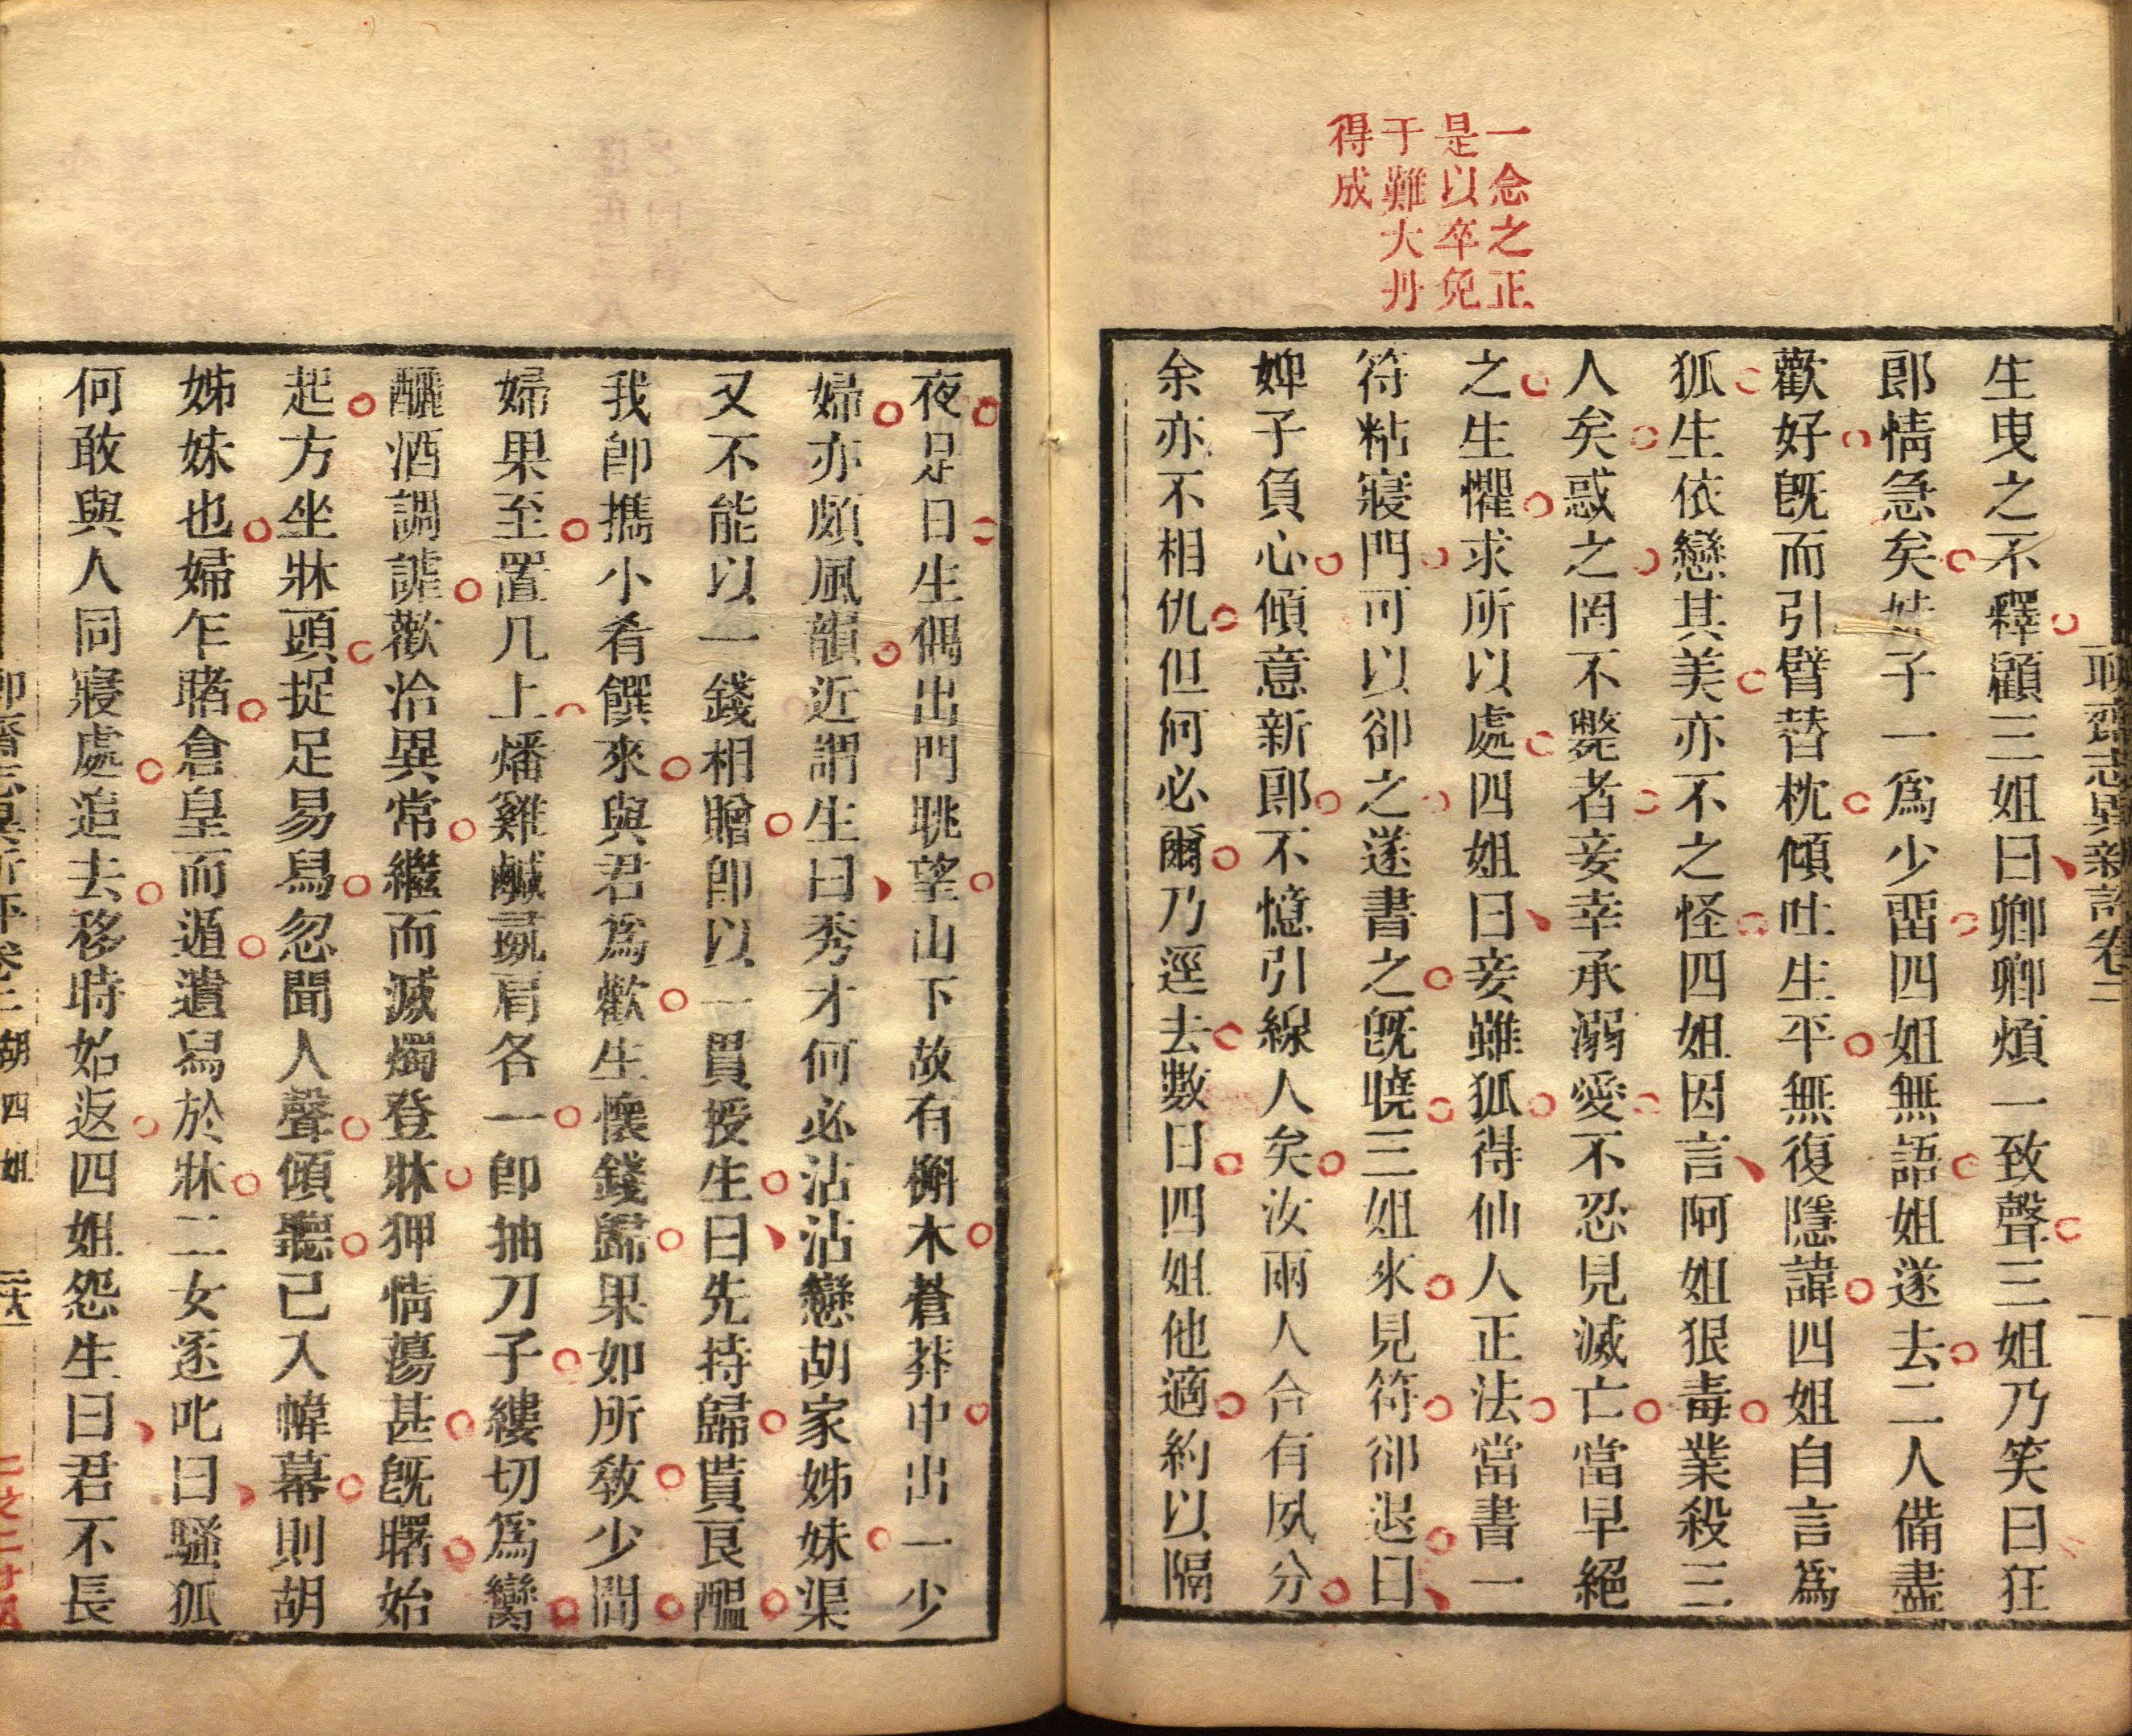 一念之正
是以卒免
于難大丹
得成
聊齋志異新評卷二
生曳之不釋顧三姐曰卿卿煩一致聲三姐乃笑曰狂
郎情急矣妹子一爲少畱四姐無語姐遂去二人備盡
歡好旣而引臂替枕傾吐生平無復隱諱四姐自言爲
狐生依戀其美亦不之怪四姐因言阿姐狠毒業殺三
人矣惑之罔不斃者妾幸承溺愛不忍見滅亡當早絕
之生懼求所以處四姐曰妾雖狐得仙人正法當書一
符粘寢門可以卻之遂書之旣曉三姐來見符卻退曰
婢子負心傾意新郎不憶引線人矣汝兩人合有夙分
余亦不相仇但何必爾乃逕去數日四姐他適約以隔
夜是日生偶出門眺望山下故有槲木蒼莽中出一少
婦亦頗風韻近謂生曰秀才何必沾沾戀胡家姊妹渠
又不能以一錢相贈卽以一貫授生曰先持歸貰良醞
我卽攜小肴饌來與君爲歡生懷錢歸果如所敎少間
婦果至置几上燔雞鹹彘肩各一卽抽刀子縷切爲臠
釃酒調謔歡洽異常繼而滅燭登牀狎情蕩甚旣曙始
起方坐牀頭捉足易舄忽聞人聲傾聽已入幃幕則胡
姊妹也婦乍睹倉皇而遁遺舄於牀二女逐叱曰騷狐
何敢與人同寢處追去移時始返四姐怨生曰君不長
聊齋志異新評卷二 胡四姐